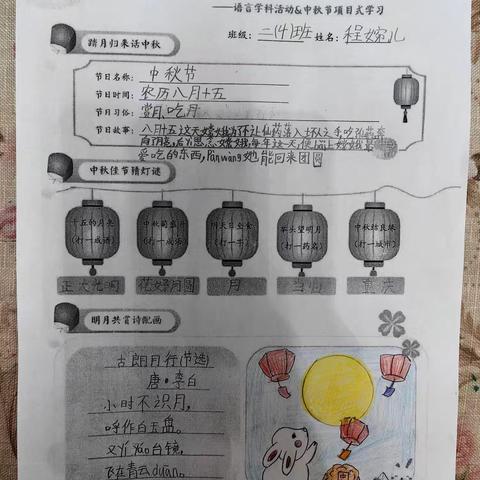 ——语言学科活动&中秋节项目式学习
班级：二(4)班 姓名：程婉儿
踏月归来话中秋
节日名称：中秋节
节日时间：农历八月十五
节日习俗：赏月、吃月
节日故事：八月十五这天嫦娥为了不让仙药落入坏人之手吃仙药奔
爱吃的东西，Pànwàng她能回来团圆
中秋佳节猜灯谜
十五的月亮 中秋菊盛开 明天日全食 举头望明月 中秋结良缘
(打一成语) (打一成语) (打一字) (打一药名) (打一城市)
正大光明 花好月圆 月 当归 重庆
明月共赏诗配画
古朗月行(节选)
唐·李白
小时不识月，
呼作白玉盘。
又疑yáo台镜，
飞在青云duān。